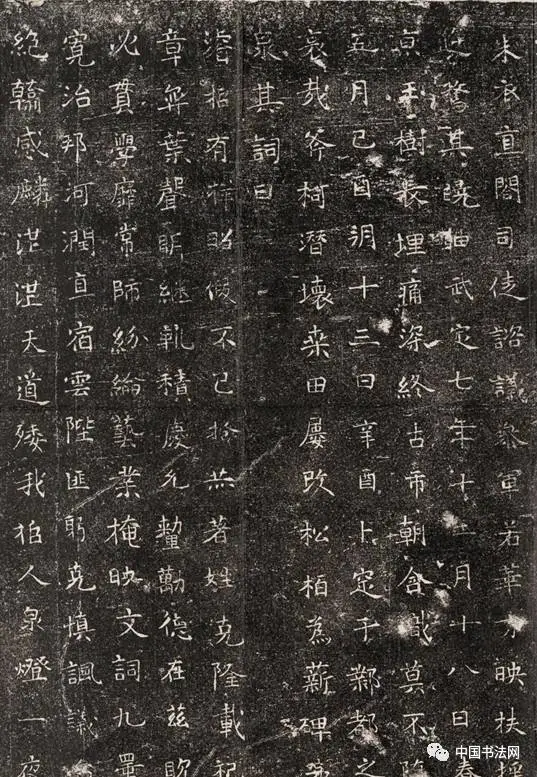 朱衣直閤司徒諮議參軍若華方映扶搖
其曉軸武定七年十二月十八日春
京玉樹長埋痛深終古市朝含戢莫不
五月己酉朔十三日辛酉卜定于鄴都之
哀哉斧柯潛壞桒田屢改松栢為薪碑
泉其詞曰
濬招有昭假不已拾共著姓克隆載祀
章弈葉聲明繼軌積慶允鍾勤德在茲
必貫學靡常師紛綸藝業掩映文詞九
寬治邦河潤直宿雲陛匪躬克慎諷議
絕翰感麟茫茫天道殘我栢人泉燈一夜
中国书法网